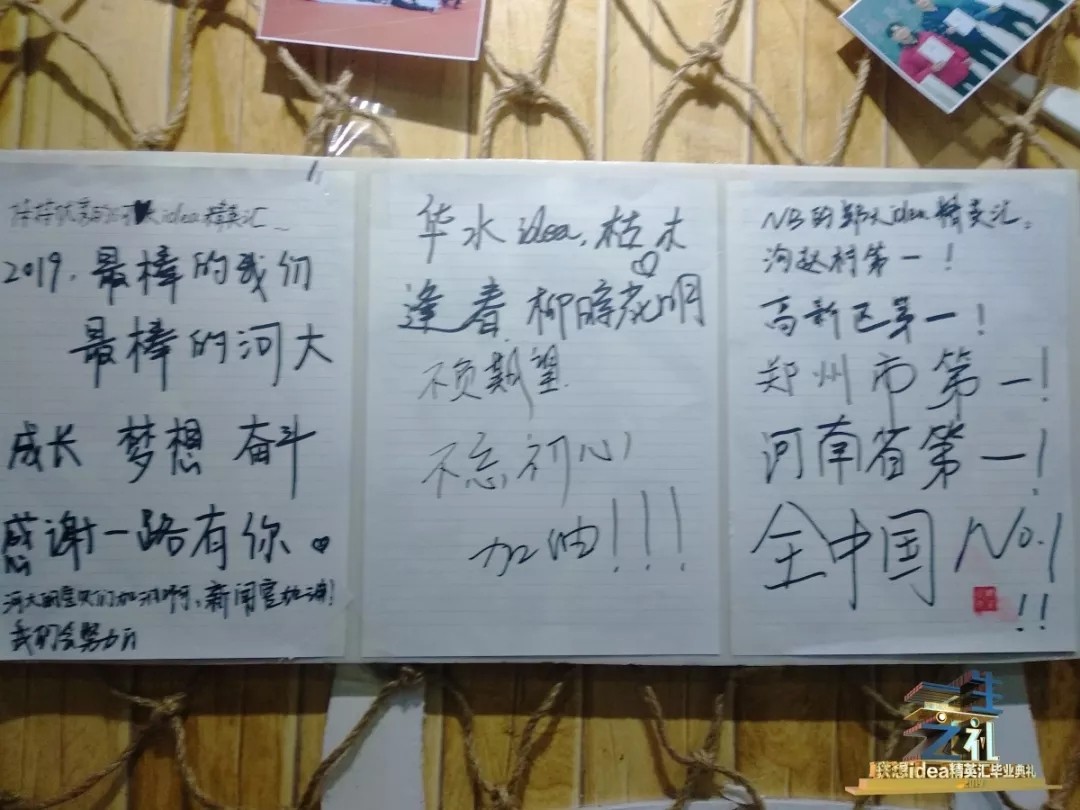 idea精英汇
2019.最棒的我们
最棒的河大
成长 梦想 奋斗
感谢一路有你
河大的宝贝们加油啊、新闻宣加油!
我们会努力
华水idea,枯木
逢春 柳暗花明
不负期望
不忘初心!
加油!!!
NB的郑大idea精英汇。
沟赵村第一!
高新区第一!
郑州市第一!
河南省第一!
全中国No.1
!!
一生
之礼
我想idea精英汇毕业典礼